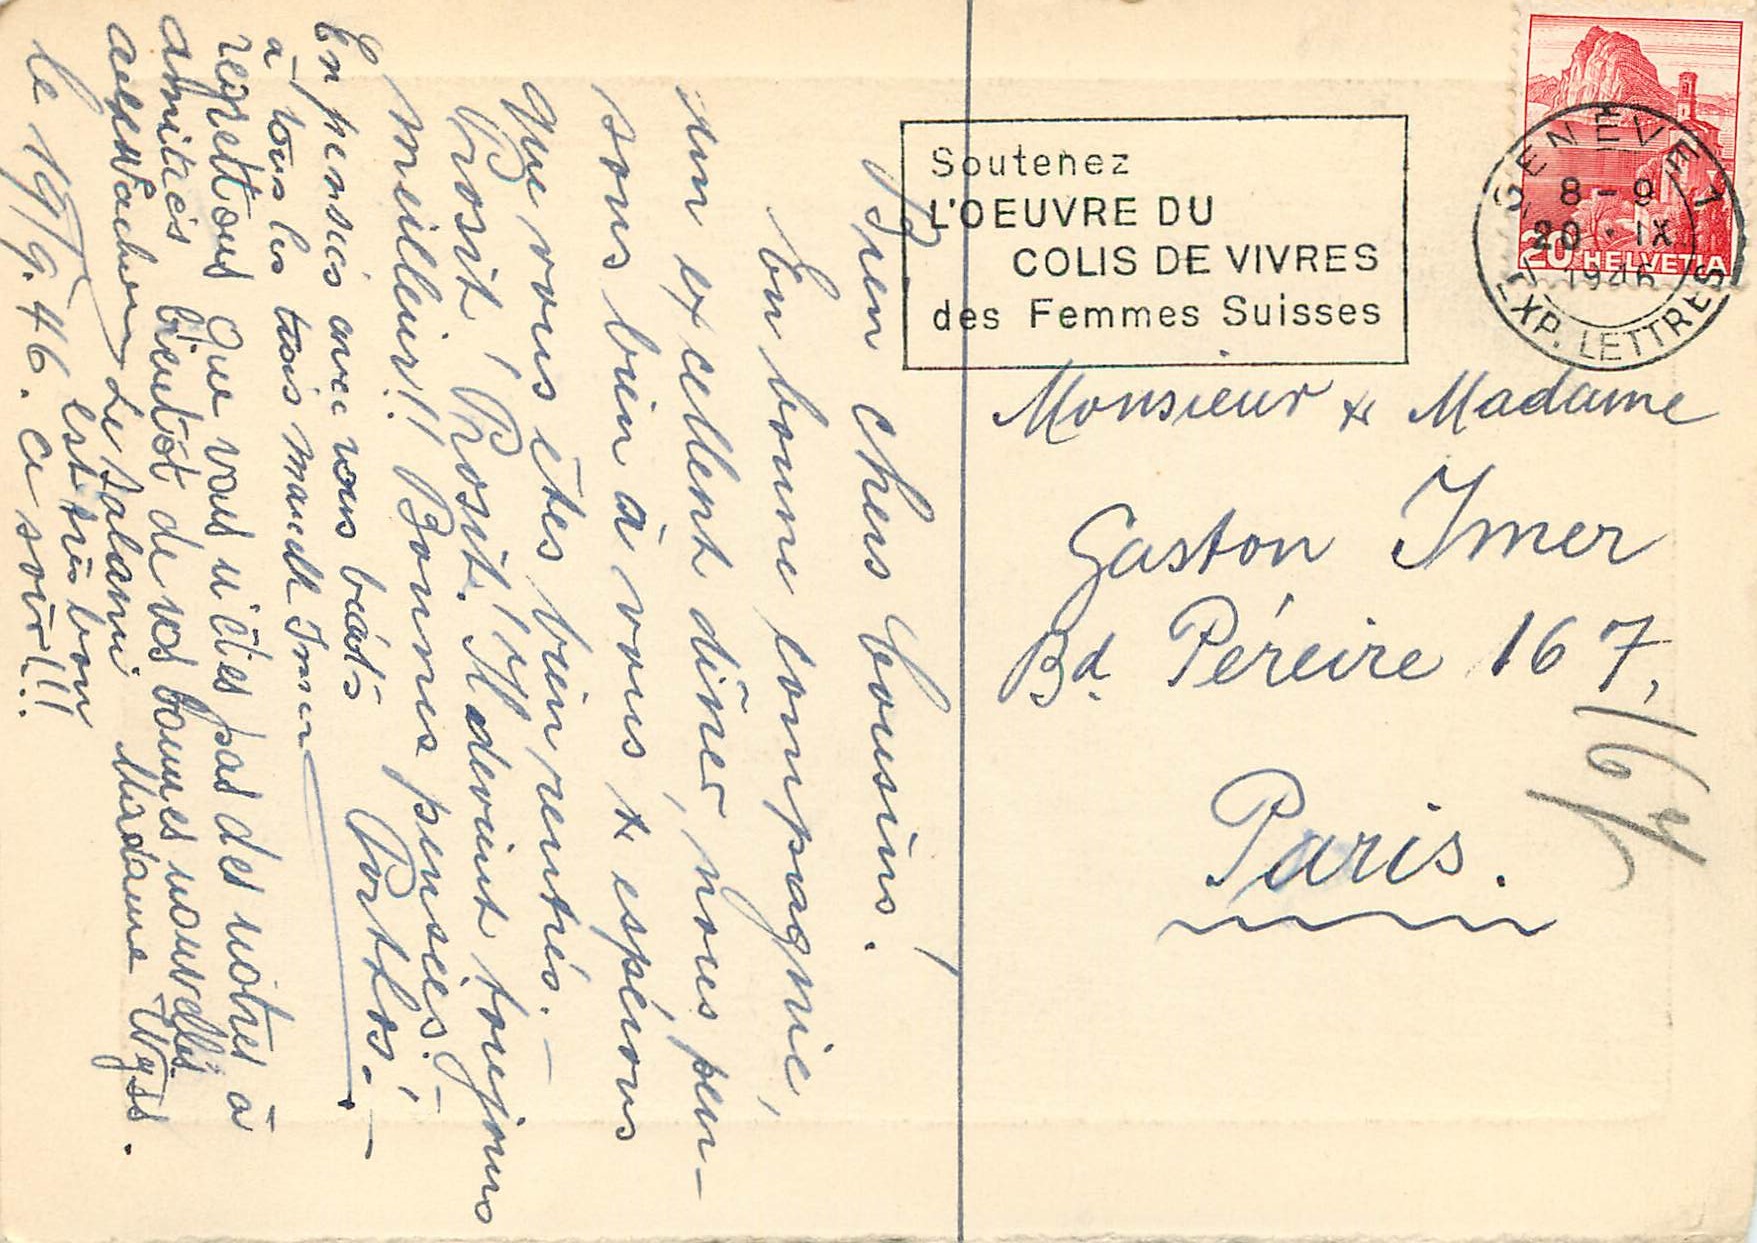 Bien chers Cousins.
En bonne compagnie,
un excellent dîner, nous pen-
sons bien à vous & espérons
que vous êtes bien rentrés.-
Prosit, Prosit! Il devient toujours
meilleur!! Bonnes pensées!-
Porthos!-
En pensées avec vous
à tous les trois
regrettons que vous n'êtes pas des nôtres à
bientôt de vos bonnes nouvelles
amitiés
Le salami
est très bon
Madame Wyss.
le 19/9.46. Ce soir!!!
Soutenez
L'OEUVRE DU
COLIS DE VIVRES
des Femmes Suisses
GENÈVE 1
8-9
20.IX
1946
EXP. LETTRES
20 HELVETIA
Monsieur & Madame
Gaston Imer
Bd. Péreire 167,
Paris.